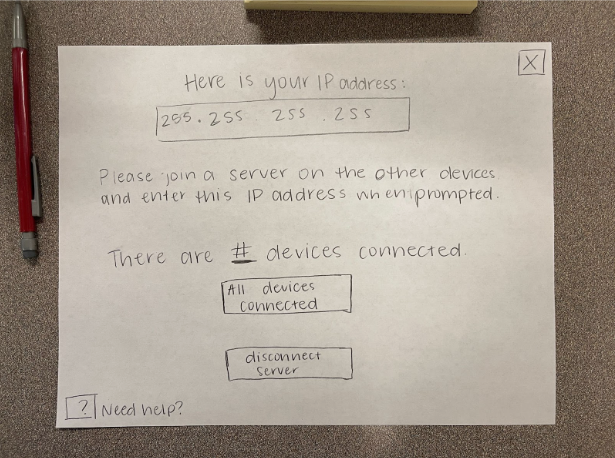 X
Here is your IP address:
255.255 255.255
Please join a server on the other devices
and enter this IP address when prompted.
There are # devices connected.
All devices
connected
disconnect
server
? Need help?